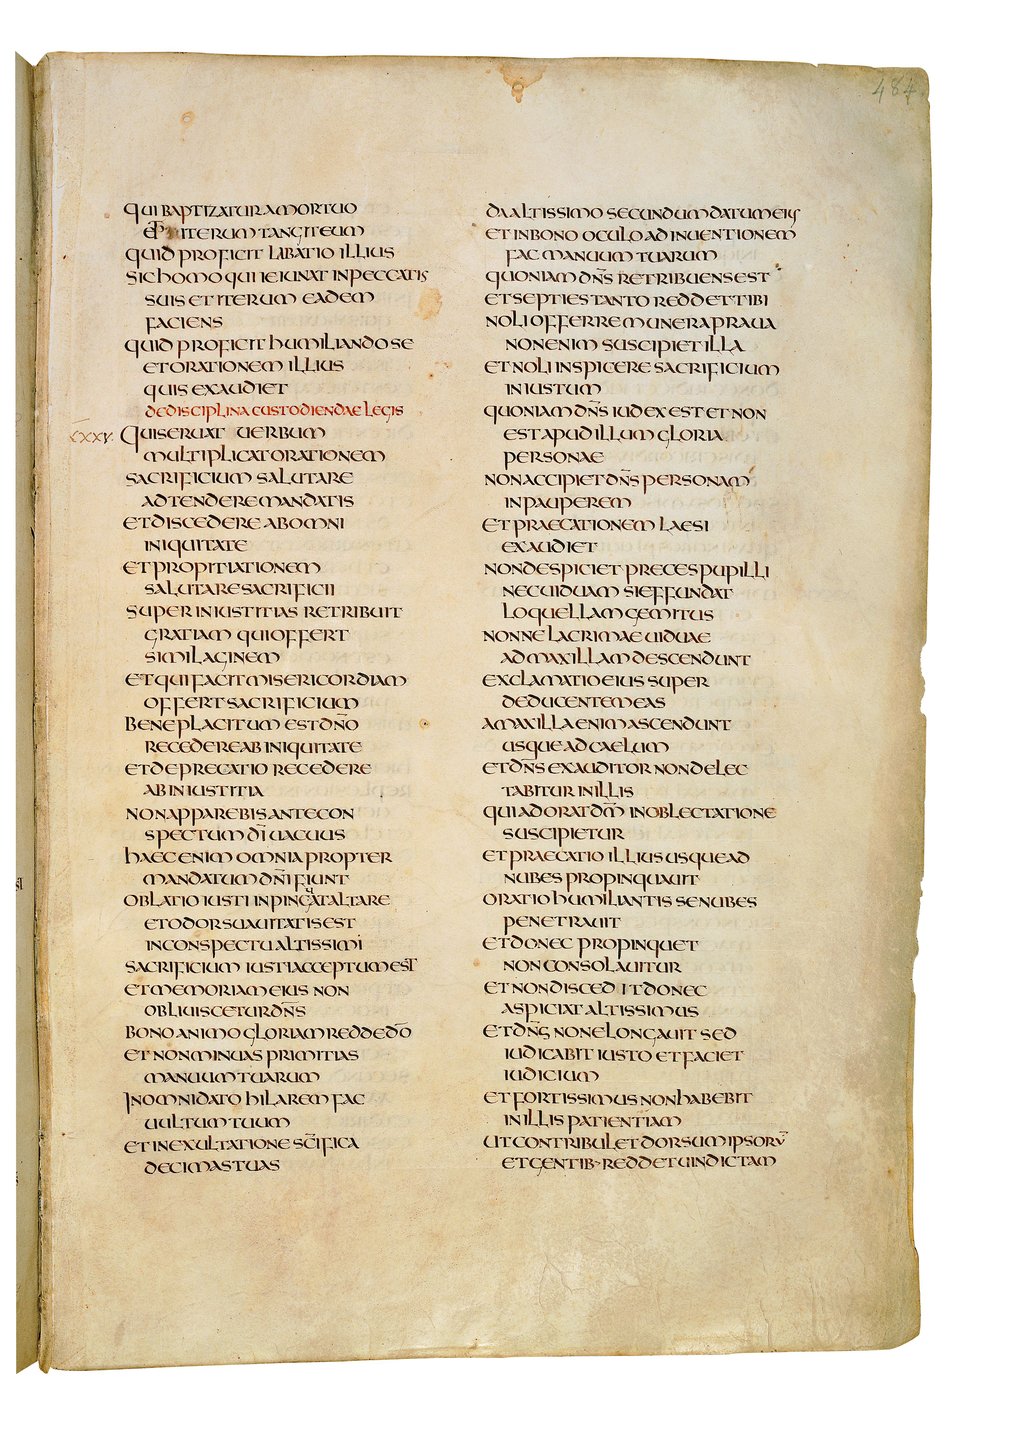 484
QUI BAPTIZATUR A MORTUO
ET ITERUM TANGIT EUM
QUID PROFICIT LABATIO ILLIUS
SIC HOMO QUI IEIUNAT IN PECCATIS
SUIS ET ITERUM EADEM
FACIENS
QUID PROFICIT HUMILIANDO SE
ET ORATIONEM ILLIUS
QUIS EXAUDIET
DE DISCIPLINA CUSTODIENDAE LEGIS
LXXXV QUI SERUAT UERBUM
MULTIPLICAT ORATIONEM
SACRIFICIUM SALUTARE
ADTENDERE MANDATIS
ET DISCEDERE AB OMNI
INIQUITATE
ET PROPITIATIONEM
SALUTARE SACRIFICII
SUPER INIUSTITIAS RETRIBUIT
GRATIAM QUI OFFERT
SIMILAGINEM
ET QUI FACIT MISERICORDIAM
OFFERT SACRIFICIUM
BENE PLACITUM EST DN̄O
RECEDERE AB INIQUITATE
ET DEPRECATIO RECEDERE
AB INIUSTITIA
NON APPAREBIS ANTE CON
SPECTUM DI̅ UACUUS
HAEC ENIM OMNIA PROPTER
MANDATUM DN̄I FIUNT
OBLATIO IUSTI INPINGAT ALTARE
ET ODOR SUAUITATIS EST
IN CONSPECTU ALTISSIMI
SACRIFICIUM IUSTI ACCEPTUM EST
ET MEMORIAM EIUS NON
OBLIUISCETUR DN̄S
BONO ANIMO GLORIAM REDDE DŌ
ET NON MINUAS PRIMITIAS
MANUUM TUARUM
IN OMNI DATO HILAREM FAC
UULTUM TUUM
ET IN EXULTATIONE SC̄IFICA
DECIMAS TUAS
DA ALTISSIMO SECUNDUM DATUM EIUS
ET IN BONO OCULO AD INUENTIONEM
FAC MANUUM TUARUM
QUONIAM DN̄S RETRIBUENS EST
ET SEPTIES TANTO REDDET TIBI
NOLI OFFERRE MUNERA PRAUA
NON ENIM SUSCIPIET ILLA
ET NOLI INSPICERE SACRIFICIUM
INIUSTUM
QUONIAM DN̄S IUDEX EST ET NON
EST APUD ILLUM GLORIA
PERSONAE
NON ACCIPIET DN̄S PERSONAM
IN PAUPEREM
ET PRAECATIONEM LAESI
EXAUDIET
NON DESPICIET PRECES PUPILLI
NEC UIDUAM SI EFFUNDAT
LOQUELLAM GEMITUS
NONNE LACRIMAE UIDUAE
AD MAXILLAM DESCENDUNT
EXCLAMATIO EIUS SUPER
DEDUCENTEM EAS
A MAXILLA ENIM ASCENDUNT
USQUE AD CAELUM
ET DN̄S EXAUDITOR NON DELEC
TABITUR IN ILLIS
QUI ADORAT DM̄ IN OBLECTATIONE
SUSCIPIETUR
ET PRAECATIO ILLIUS USQUE AD
NUBES PROPINQUAUIT
ORATIO HUMILIANTIS SE NUBES
PENETRAUIT
ET DONEC PROPINQUET
NON CONSOLAUITUR
ET NON DISCED IT DONEC
ASPICIAT ALTISSIMUS
ET DN̄S NON ELONGAUIT SED
IUDICABIT IUSTO ET FACIET
IUDICIUM
ET FORTISSIMUS NON HABEBIT
IN ILLIS PATIENTIAM
UT CONTRIBULET DORSUM IPSORV̄
ET GENTIB· REDDET UINDICTAM